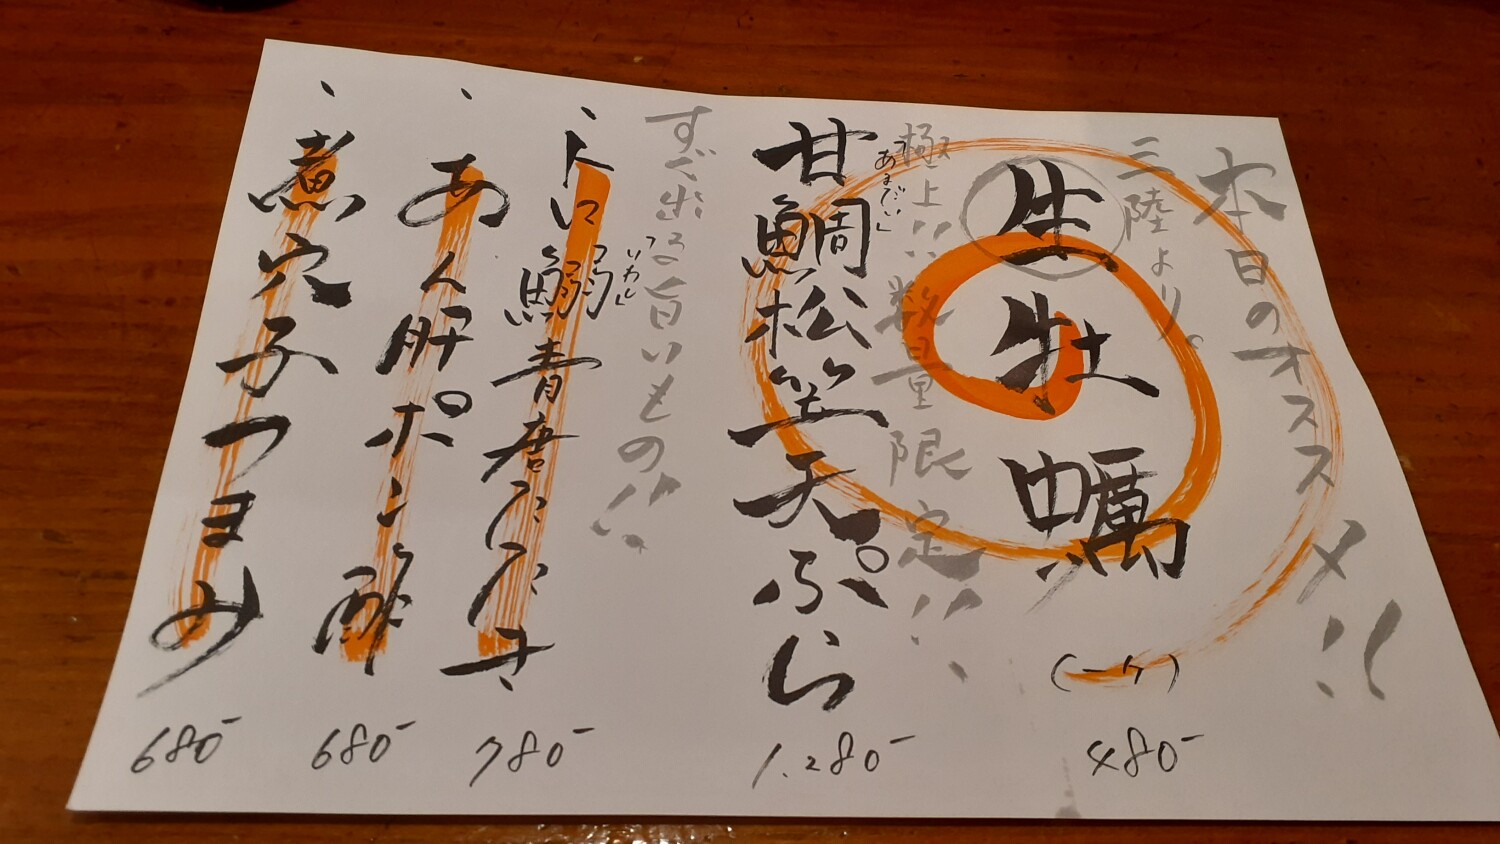 本日のオススメ!!
三陸より。
生牡蠣
(一ケ)
480-
極上!!数量限定!!
「あまだい」
甘鯛松笠天ぷら
1.280-
すぐ出る旨いもの!!
「いわし」
鰯青唐たたき
780-
あん肝ポン酢
680-
煮穴子つまみ
680-